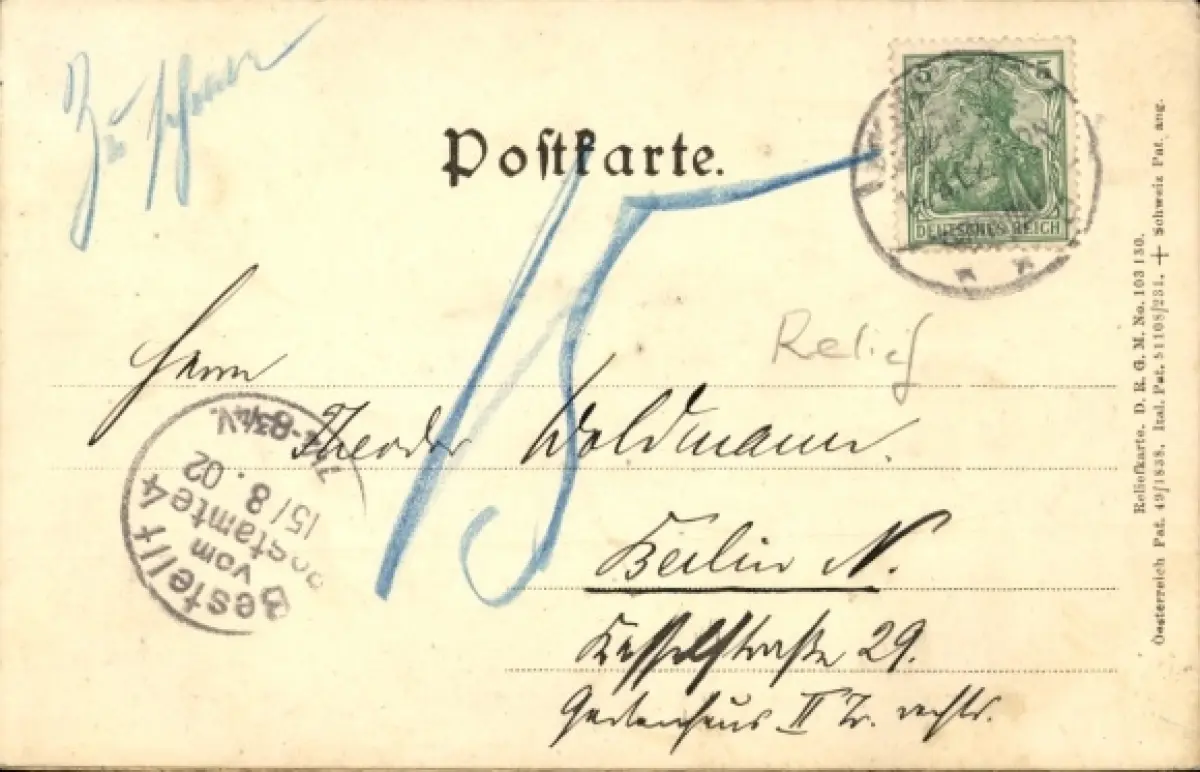 Postkarte.
5 5
DEUTSCHES REICH
15
Relief
Herrn
Theodor Woldmann.
Berlin N.
29.
Gartenhaus II Tr. rechts.
Bestellt
vom
Postamte 4
15/8.02
7½-8¾V.
Reliefkarte. D. R. G. M. No. 103 130.
Oesterreich Pat. 49/1838. Ital. Pat. 51108/231. + Schweiz Pat. ang.